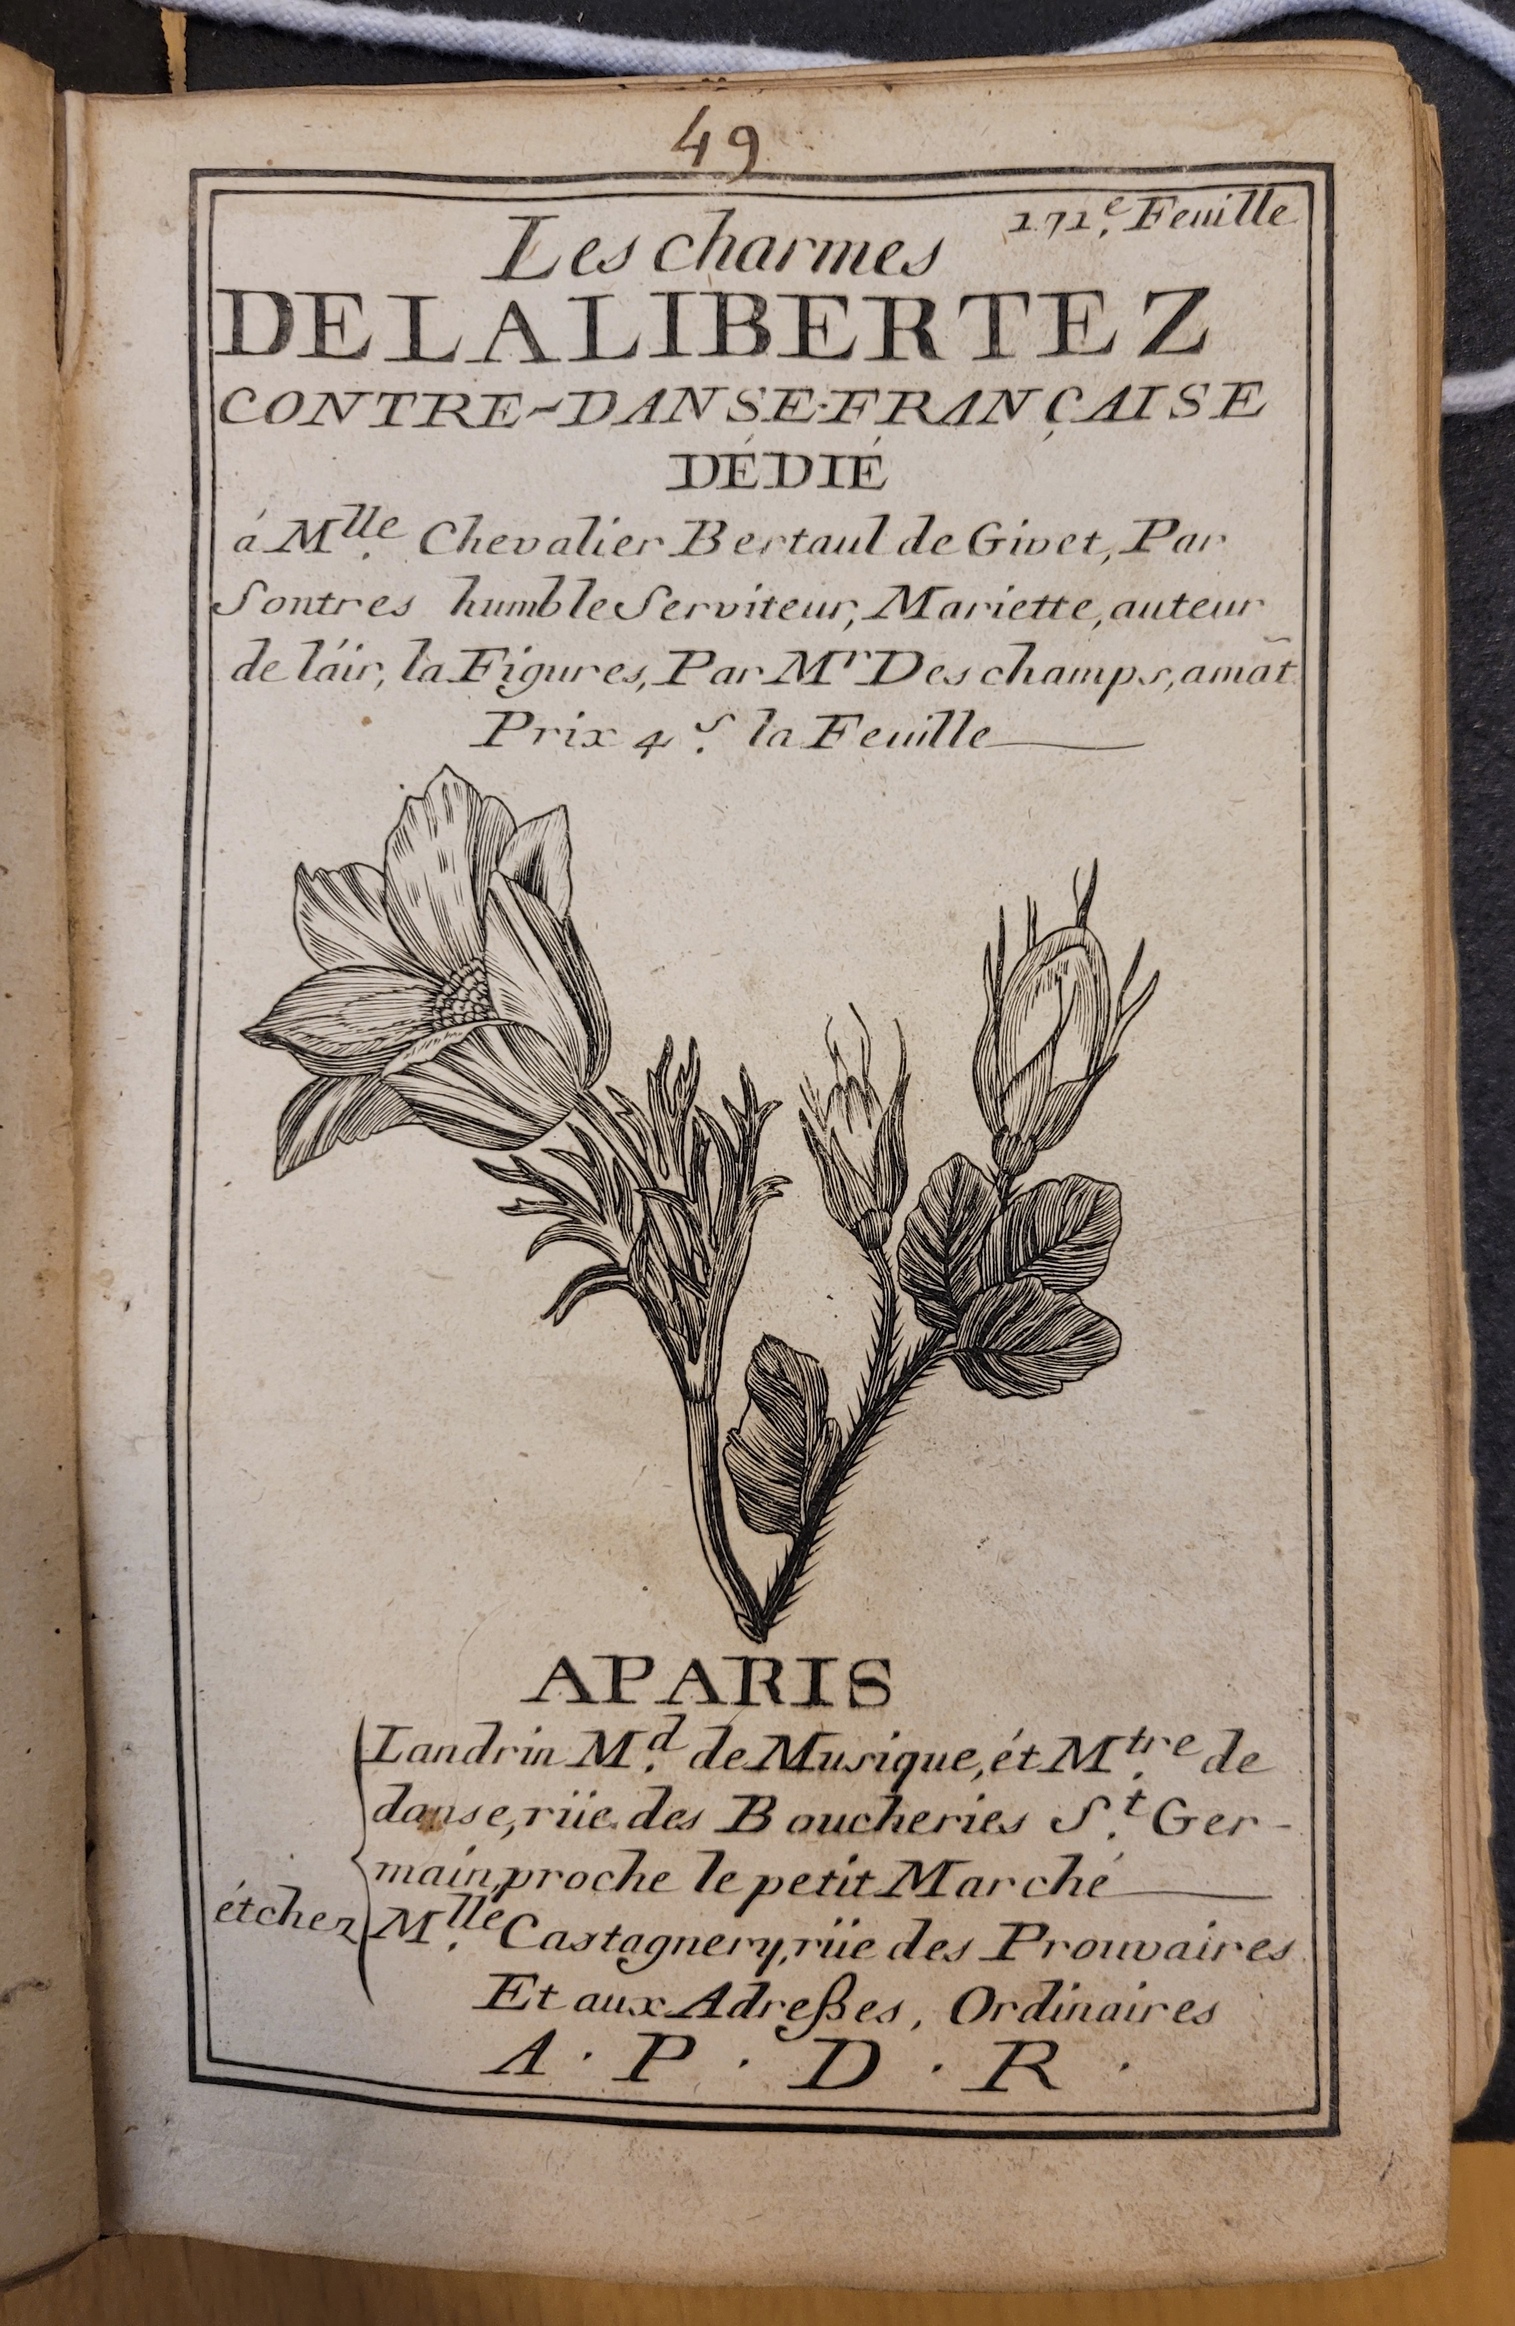 49
171.e Feuille
Les charmes
DE LA LIBERTEZ
CONTRE-DANSE-FRANÇAISE
DÉDIÉ
á M.lle Chevalier Bertaul de Givet, Par
Sontres humble Serviteur, Mariette, auteur
de láir, la Figures, Par Mr Deschamps, amãt
Prix 4.s la Feuille
A PARIS
Landrin M.d de Musique, ét M.tre de
danse, rüe des Boucheries S.t Ger-
main, proche le petit Marché
ét chez M.lle Castagnery, rüe des Prouvaires
Et aux Adreßes, Ordinaires
A . P . D . R .